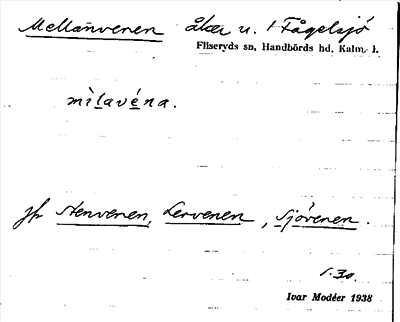 Mellanvenen åker u. Fågelsjö
Fliseryds sn, Handbörds hd, Kalm. l.
mìlavéna.
jfr Stenvenen, Lervenen, Sjövenen.
1.30.
Ivar Modéer 1938